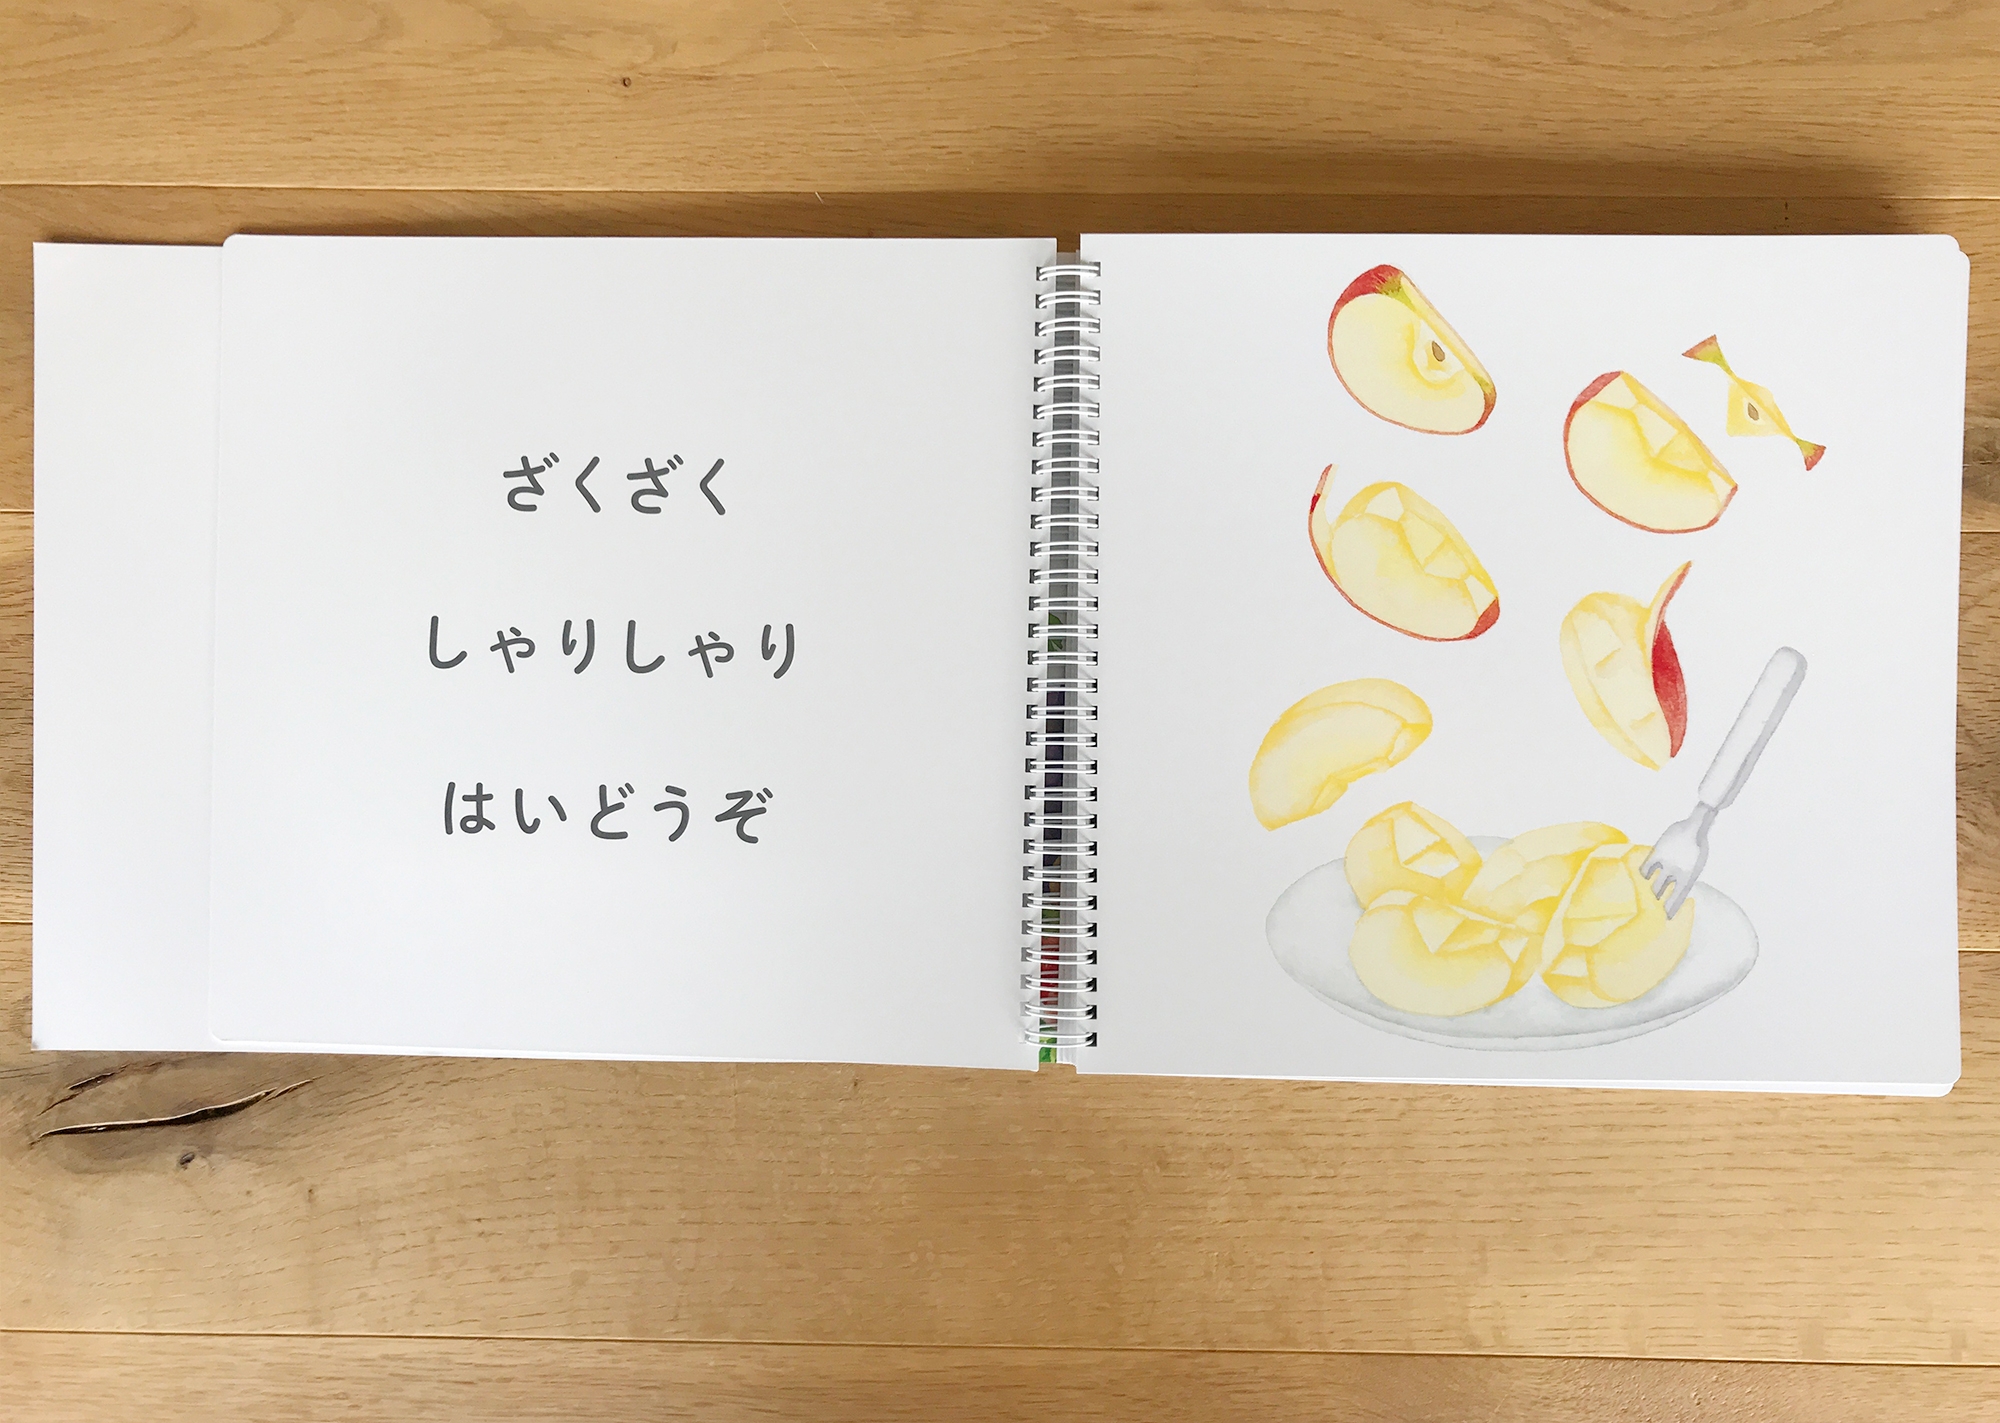 ざくざく
しゃりしゃり
はいどうぞ